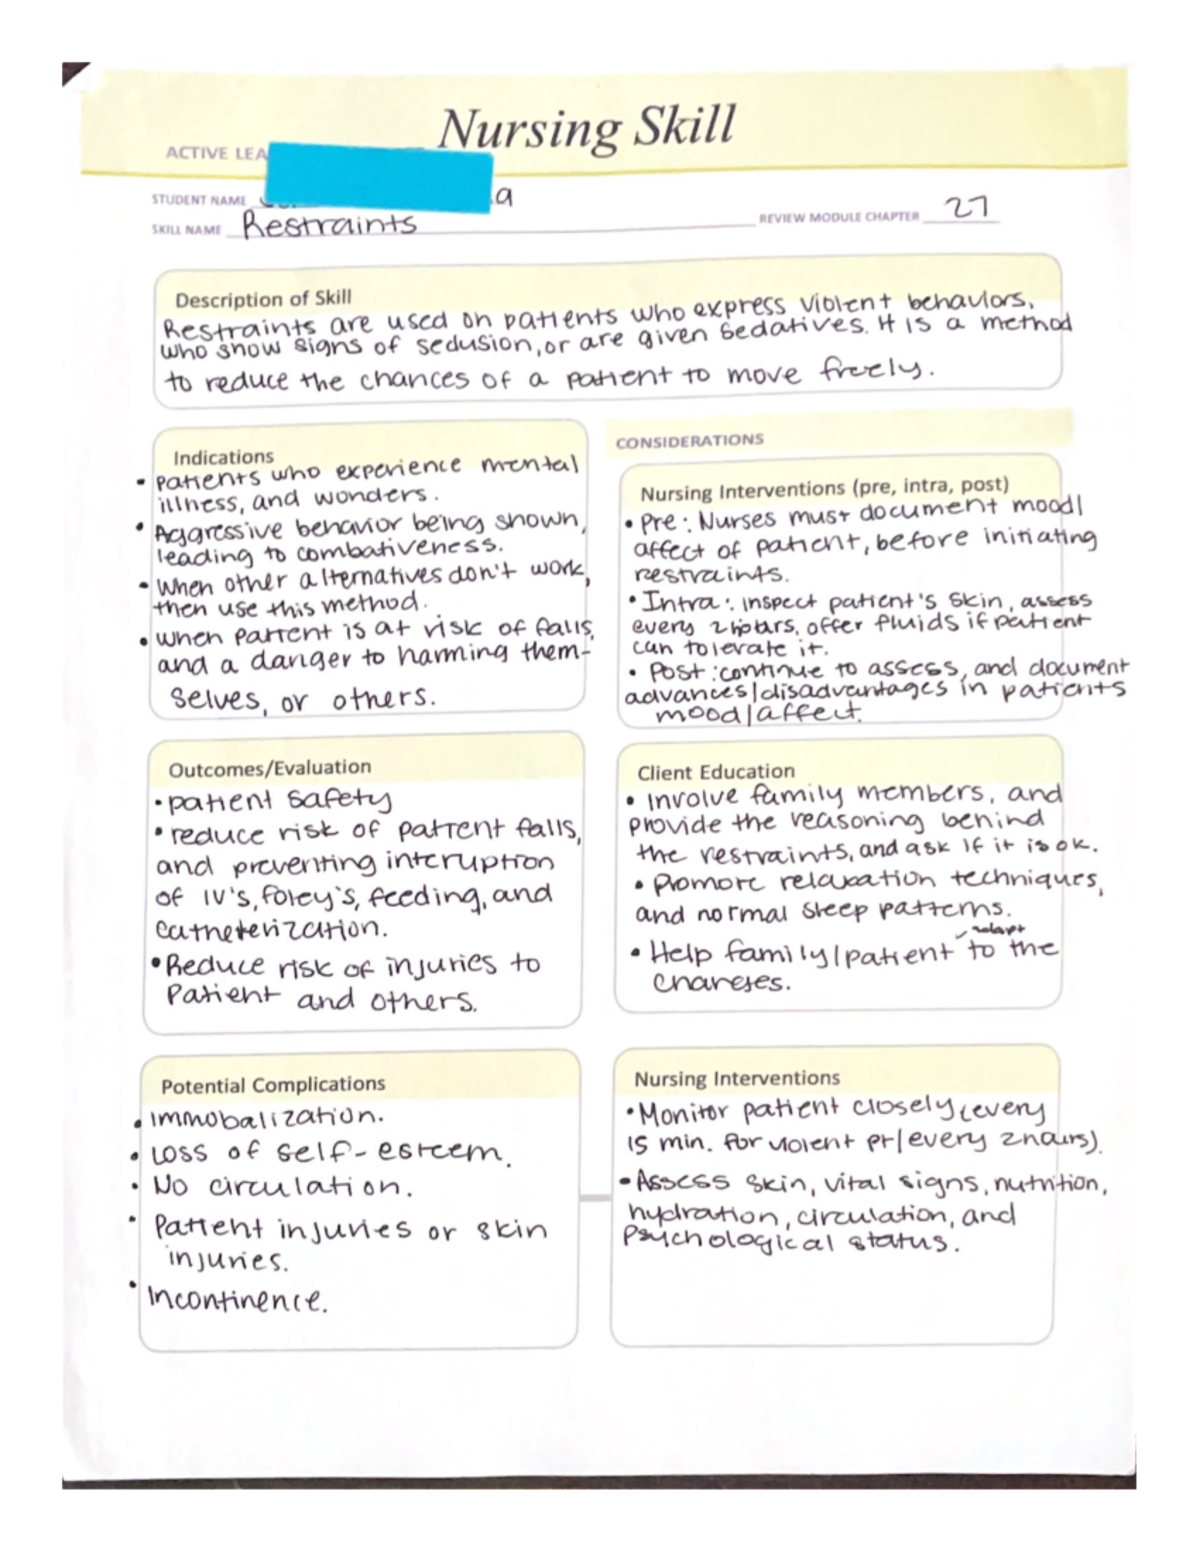 Nursing Skill
ACTIVE LEA
STUDENT NAME a
SKILL NAME Restraints REVIEW MODULE CHAPTER 27
Description of Skill
Restraints are used on patients who express violent behaviors,
who show signs of sedusion, or are given sedatives. It is a method
to reduce the chances of a patient to move freely.
Indications
• patients who experience mental
illness, and wonders.
• Aggressive behavior being shown,
leading to combativeness.
• When other alternatives don't work,
then use this method.
• when patient is at risk of falls,
and a danger to harming them-
selves, or others.
CONSIDERATIONS
Nursing Interventions (pre, intra, post)
• Pre: Nurses must document mood/
affect of patient, before initiating
restraints.
• Intra: inspect patient's skin, assess
every 2 hours, offer fluids if patient
can tolerate it.
• Post: continue to assess, and document
advances/disadvantages in patients
mood/affect.
Outcomes/Evaluation
• patient safety
• reduce risk of patient falls,
and preventing interuption
of IV's, foley's, feeding, and
catheterization.
• Reduce risk of injuries to
patient and others.
Client Education
• involve family members, and
provide the reasoning behind
the restraints, and ask if it is ok.
• Promote relaxation techniques,
and normal sleep patterns.
• Help family/patient adapt to the
Potential Complications
• Immobalization.
• Loss of self-esteem.
• No circulation.
• Patient injuries or skin
injuries.
• Incontinence.
Nursing Interventions
• Monitor patient closely (every
15 min. for violent pt/every 2 hours).
• Assess skin, vital signs, nutrition,
hydration, circulation, and
psychological status.